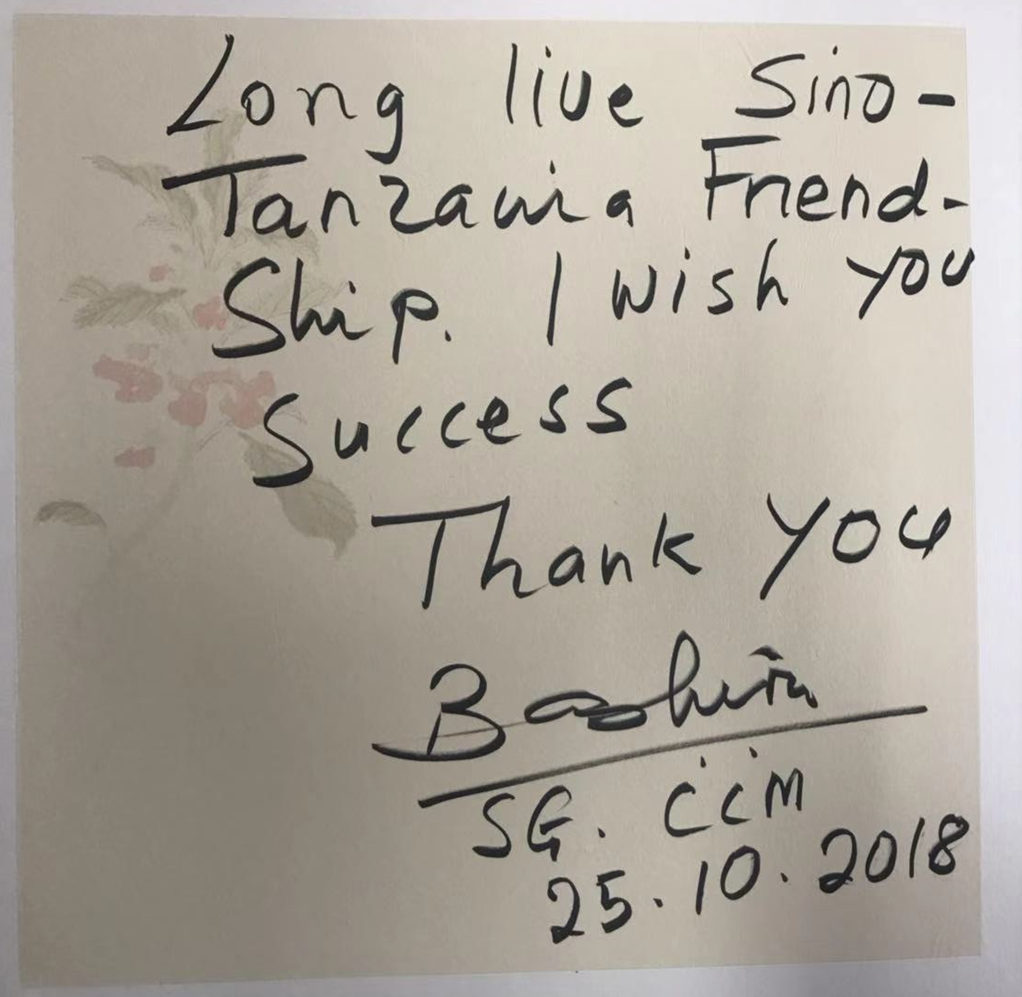 Long live Sino-
Tanzania Friend-
Ship. I wish you
Success
Thank you
Bashiru
SG. CCM
25.10.2018